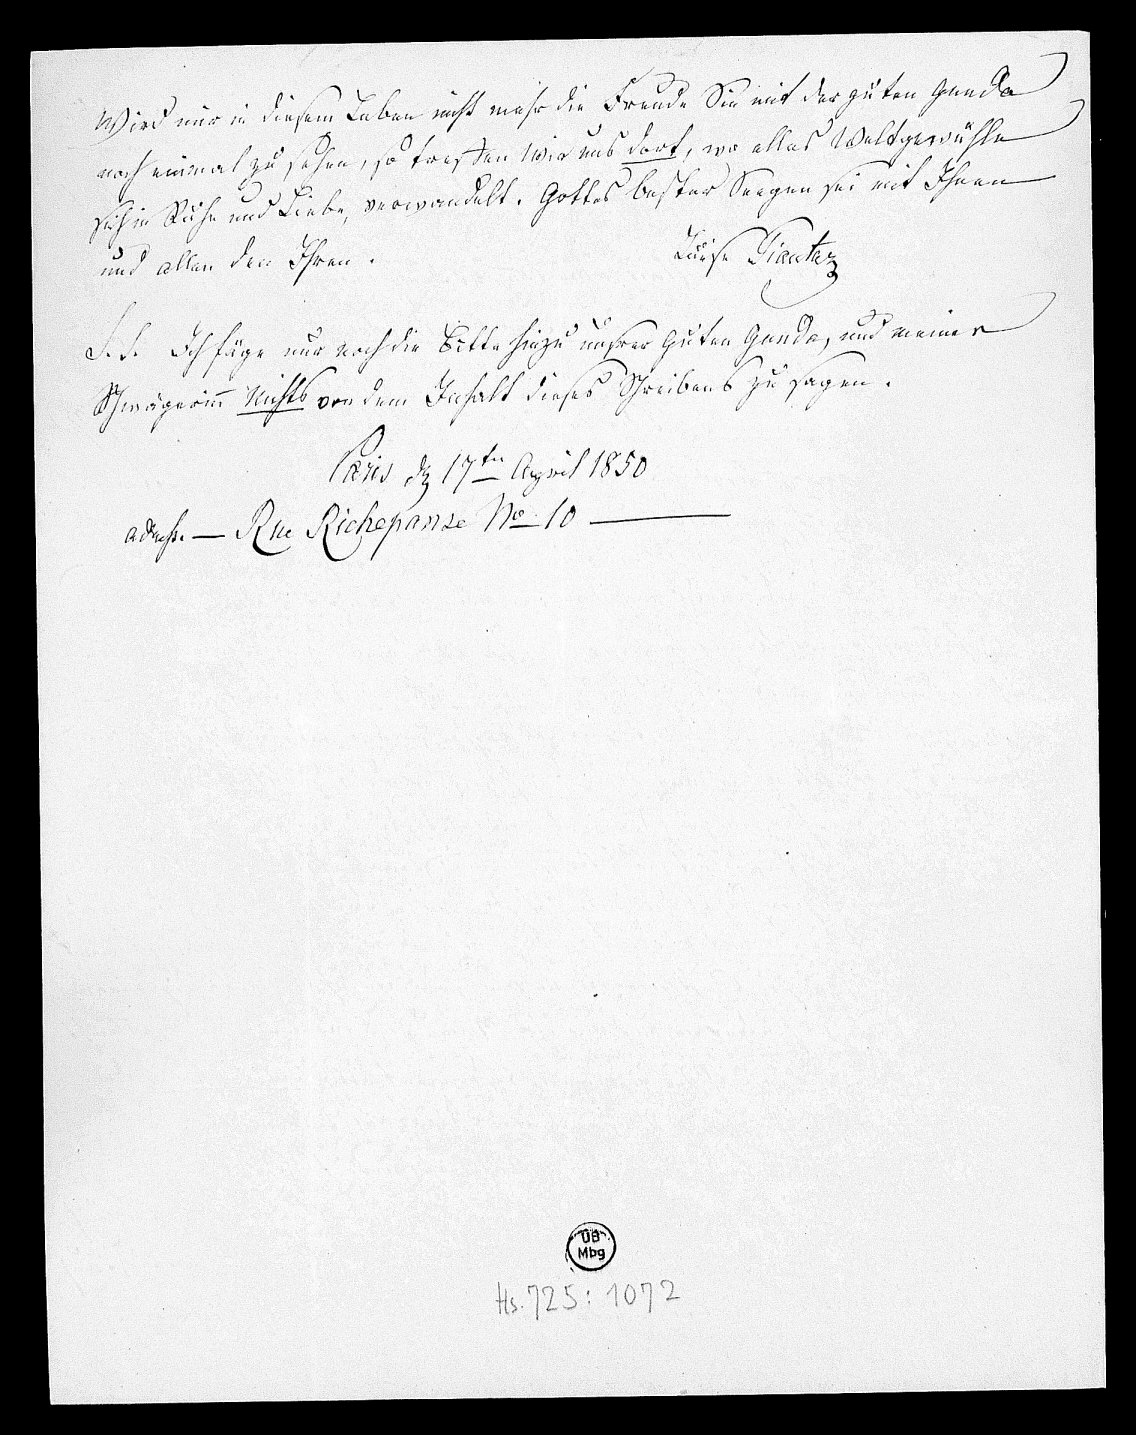 Wird mir in diesem Leben nicht mehr die Freude Sie mit der guten Gunda
noch einmal zu sehen, so treffen wir uns dort, wo alles Weltgewühle
sich in Ruhe und Liebe, verwandelt. Gottes bester Seegen sei mit Ihnen
und allen den Ihren.
Luise
Ich füge nur noch die Bitte hinzu unsrer guten Gunda, und meiner
Schwägerin Nichts von dem Inhalt dieses Schreibens zu sagen.
Paris d 17ten April 1850
adresse. — Rue Richepanse No 10 —
UB
Mbg
Hs. 725: 1072